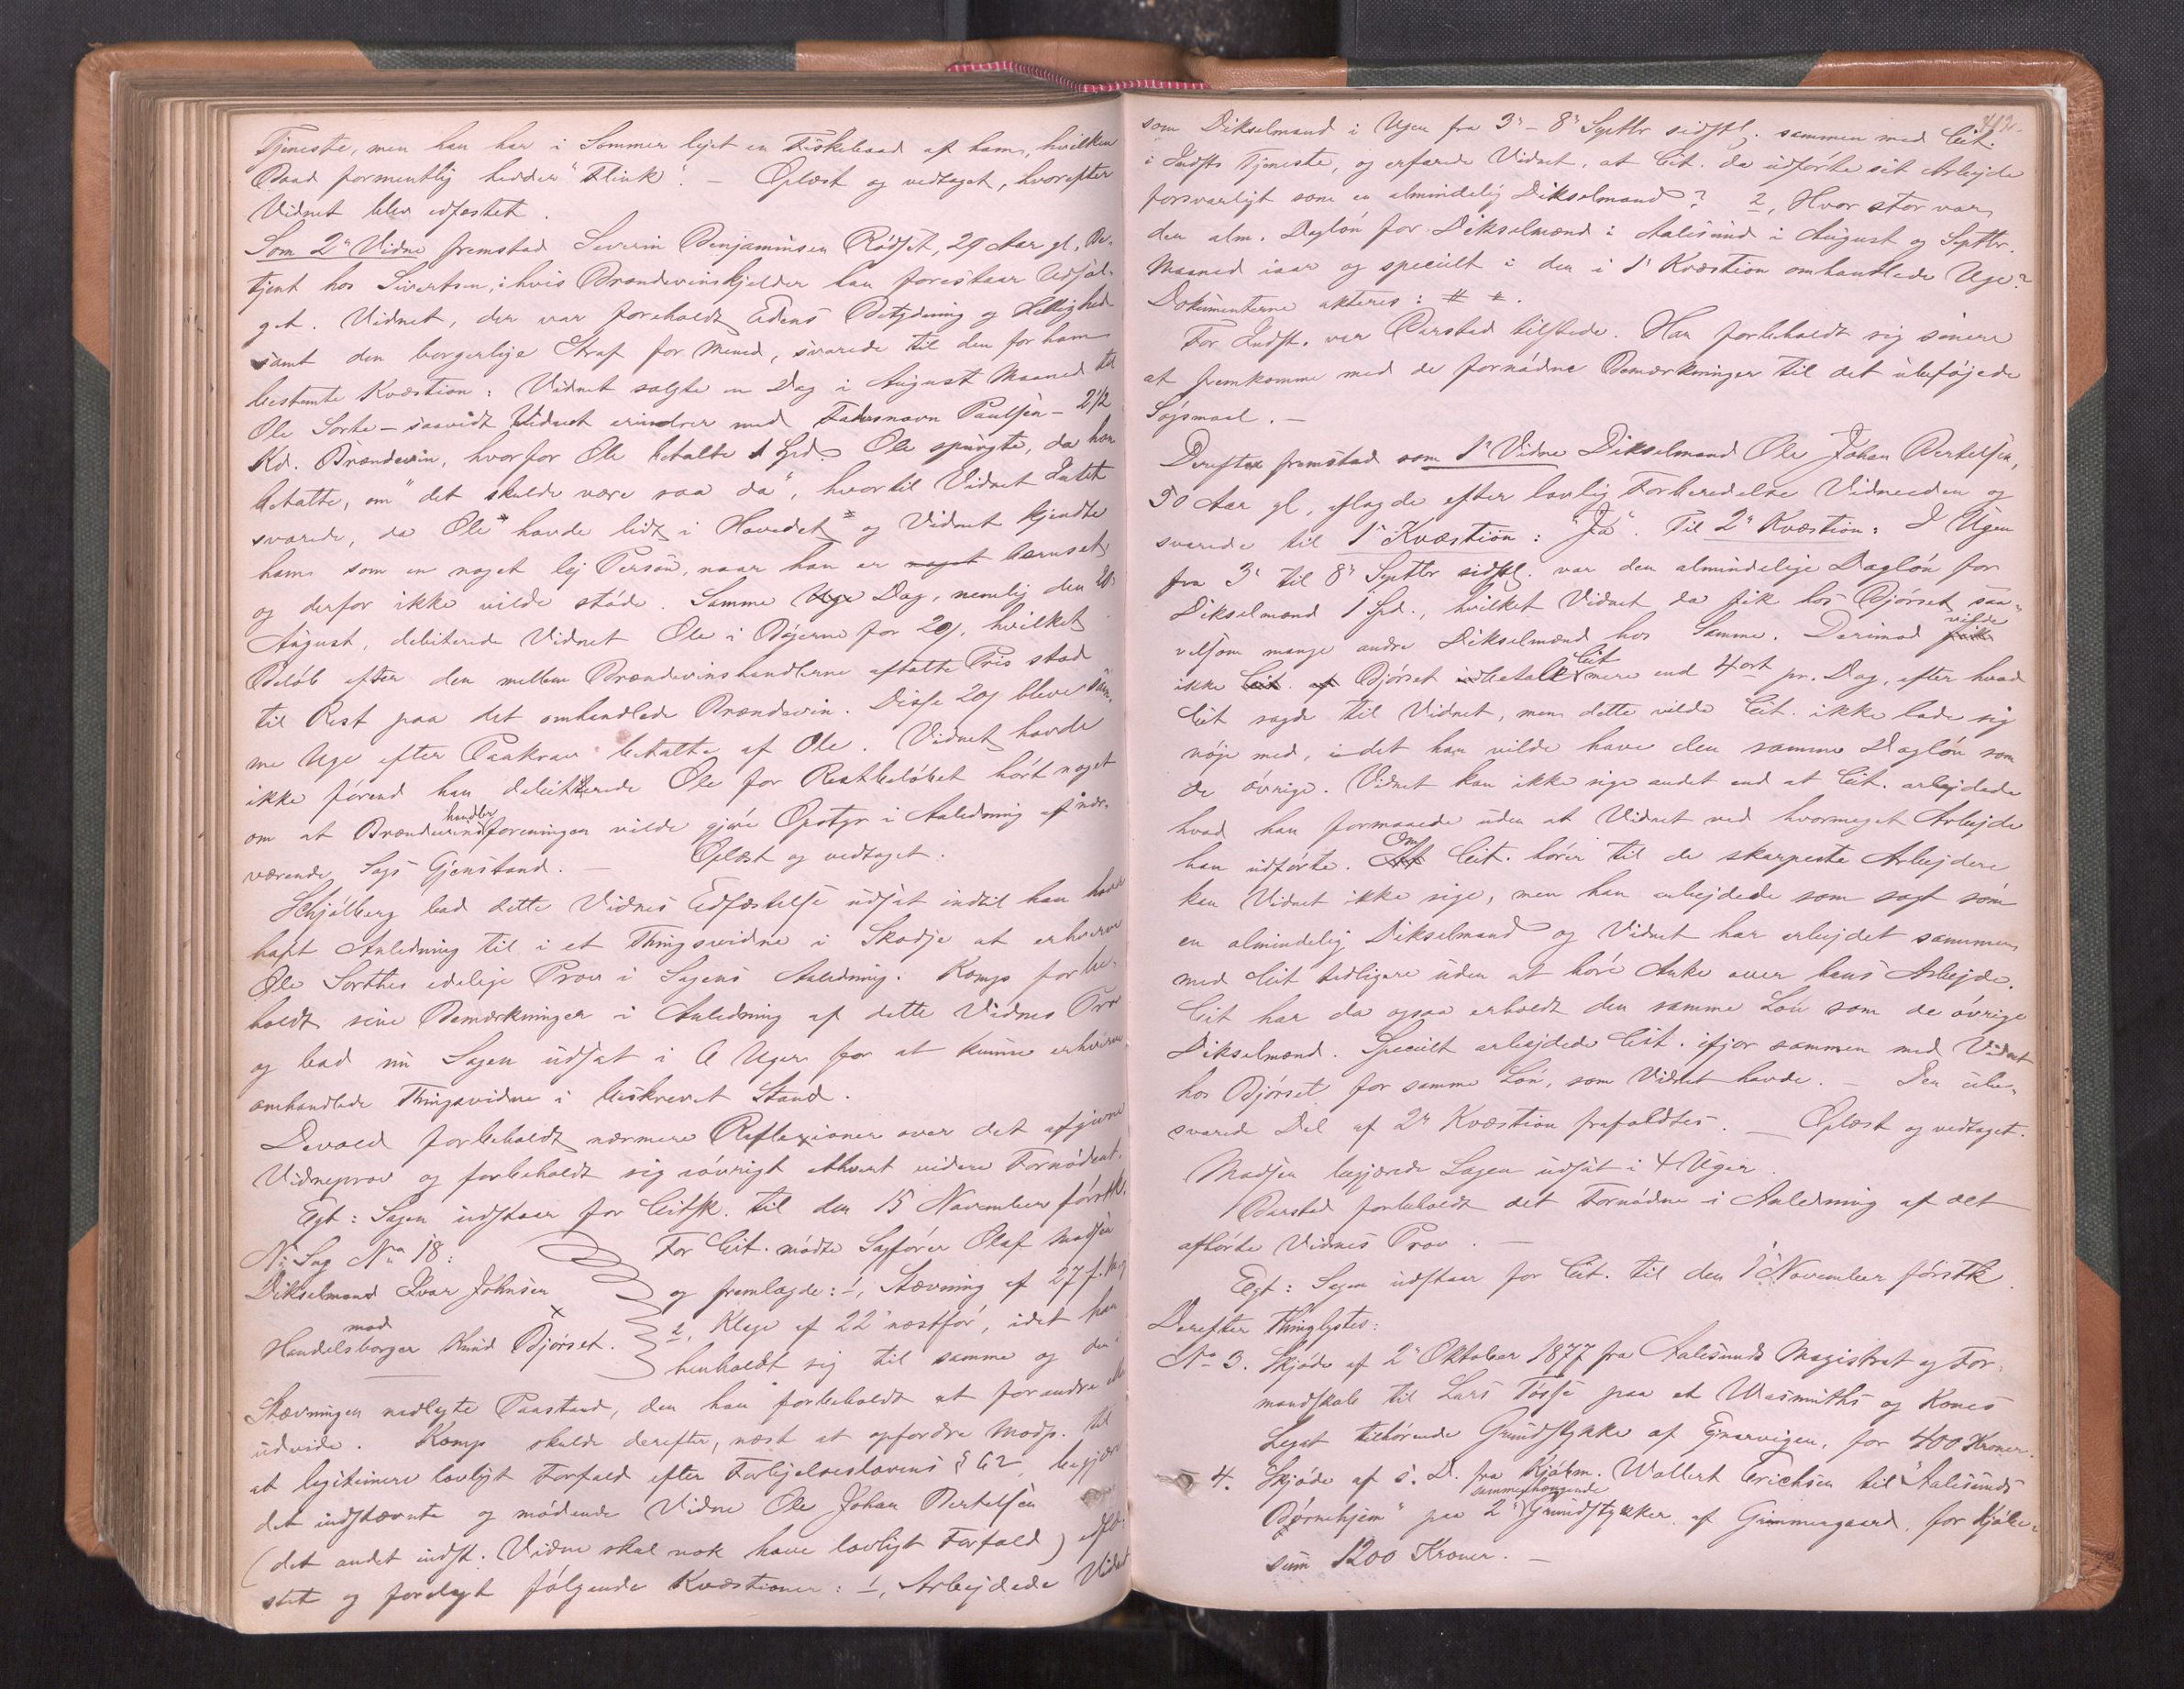 Tjeneste, men han har i Sommer lejet en Fiskebaad af ham, hvilken
Baad formentlig hedder "Flink". – Oplæst og vedtaget, hvorefter
Vidnet blev edfæstet.
Som 2det Vidne fremstod Severin Benjaminsen Rödset, 29 Aar gl., Be-
tjent hos Sivertsen, i hvis Brændevinskjelder han forestaar Udsal-
get. Vidnet, der var foreholdt Edens Betydning og Hellighed
samt den borgerlige Straf for Mened, svarede til den for ham
bestemte Kvæstion: Vidnet solgte en Dag i August Maaned til
Ole Sorte – saavidt Vidnet erindrer med Fadersnavn Paulsen – 2 1/2
Kd. Brændevin, hvorfor Ole betalte 1 Spd. Ole spurgte, da han
betalte, om "det skulde være saa da", hvortil Vidnet Intet
svarede, da Ole "havde lidt i Hovedet" og Vidnet kjendte
ham som en noget lej Person, naar han er noget beruset
og derfor ikke vilde støde. Samme Uge Dag, nemlig den
August, debiterede Vidnet Ole i Bøgerne for 20 s, hvilket
Beløb efter den mellem Brændevinshandlerne aftalte Pris stod
til Rest paa det omhandlede Brændevin. Disse 20 s bleve sam-
me Uge efter Paakrav betalte af Ole. Vidnet havde
ikke förend han debiterede Ole for Restbeløbet hørt noget
om at Brændevinshandlerforeningen vilde gjöre Opstyr i Anledning af nær-
værende Sags Gjenstand. – Oplæst og vedtaget.
Schjölberg bad dette Vidnes Edfæstelse udsat indtil han havde
havt Anledning til i et Thingsvidne i Skodje at erhverve
Ole Sorthes edelige Prov i Sagens Anledning. Komp. forbe-
holdt sine Bemærkninger i Anledning af dette Vidnes Prov
og bad nu Sagen udsat i 6 Uger for at kunne erhverve
omhandlede Thingsvidne i beskrevet Stand.
Devold forbeholdt nærmere Reflexioner over det afgivne
Vidneprov og forbeholdt sig iøvrigt ethvert videre Fornødent.
Egt: Sagen udstaar for Citsk. til den 15 November førstk.
Ny Sag No 18: For Cit. mødte Sagfører Olaf Madsen
Dikselmand Ivar Johnsen og fremlagde: 1, Stævning af 27 f. M. og
mod 2, Klage af 22de næstfør, idet han
Handelsborger Knud Bjørset. henholdt sig til samme og den i
Stævningen nedlagte Paastand, den han forbeholdt at forandre eller
udvide. Komp. skulde derefter, næst at opfordre Modp. til
at legitimere lovligt Forfald efter Forligelseslovens § 62, begjære
det indstævnte og mødende Vidne Ole Johan Bertelsen
(det andet indst. Vidne skal nok have lovligt Forfald) edfæ-
stet og forelagt følgende Kvæstioner: 1, Arbejdede Vidnet
412
som Dikselmand i Ugen fra 3die – 8de Septbr sidstl. sammen med Cit.
i Indsts Tjeneste, og erfarede Vidnet, at Cit. da udførte sit Arbejde
forsvarligt som en almindelig Dikselmand? 2, Hvor stor var
den alm. Dagløn for Dikselmænd i Aalesund i August og Septbr.
Maaned iaar og specielt i den i 1ste Kvæstion omhandlede Uge?
Dokumenterne akteres: # #.
For Indst. var Barstad tilstede. Han forbeholdt sig senere
at fremkomme med de fornødne Bemærkninger til det ubeføjede
Søgsmaal. –
Derefter fremstod som 1ste Vidne Dikselmand Ole Johan Bertelsen,
50 Aar gl., aflagde efter lovlig Forberedelse Vidneeden og
svarede til 1ste Kvæstion: "Ja". Til 2den Kvæstion: I Ugen
fra 3die til 8de Septbr sidstl. var den almindelige Dagløn for
Dikselmænd 1 Spd., hvilket Vidnet da fik hos Bjørset, saa-
velsom mange andre Dikselmænd hos Samme. Derimod fik vilde
ikke Cit. af Bjørset udbetale Cit mere end 4 ort pr. Dag, efter hvad
Cit sagde til Vidnet, men dette vilde Cit. ikke lade sig
nøje med, idet han vilde have den samme Dagløn som
de øvrige. Vidnet kan ikke sige andet end at Cit. arbejdede
hvad han formaaede uden at Vidnet ved hvormeget Arbejde
han udførte. At Om Cit. hører til de skarpeste Arbejdere
kan Vidnet ikke sige, men han arbejdede som sagt som
en almindelig Dikselmand og Vidnet har arbejdet sammen
med Cit tidligere uden at høre Anke over hans Arbejde.
Cit har da ogsaa erholdt den samme Løn som de øvrige
Dikselmænd. Specielt arbejdede Cit. ifjor sammen med Vidnet
hos Bjørset for samme Løn, som Vidnet havde. – Den ube-
svarede Del af 2den Kvæstion frafaldtes. – Oplæst og vedtaget.
Madsen begjærede Sagen udsat i 4 Uger.
Barstad forbeholdt det Fornødne i Anledning af det
afhørte Vidnes Prov. –
Egt: Sagen udstaar for Cit. til den 1ste November førstk.
Derefter Thinglystes:
No 3. Skjøde af 2den Oktober 1877 fra Aalesunds Magistrat og For-
mandskab til Lars Tøsse paa et Wasmuths og Kones
Legat tilhørende Grundstykke af Ejnarvigen, for 400 Kroner.
" 4. Skjøde af s. D. fra Kjøbm. Wollert Erichsen til "Aalesunds
Børnehjem" paa 2de sammenhængende Grundstykker af Gimmesgaard, for Kjøbe-
sum 1200 Kroner. –